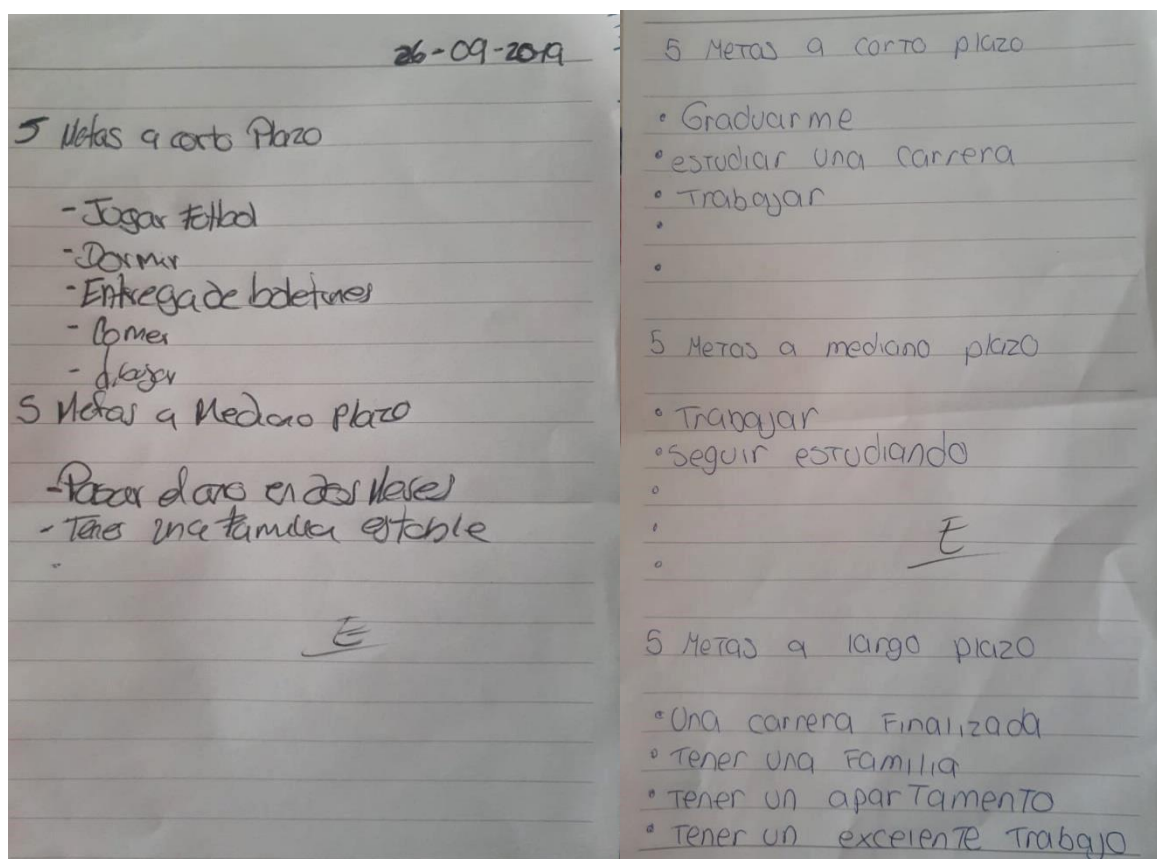 26-09-2019
5 Metas a corto Plazo
- Jogar fotbol
- Dormir
- Entrega de boletines
- Comer
-
5 Metas a Mediano plazo
- Pasar el ano en dos Meses
- Tener una familia estable
E
5 Metas a corto plazo
• Graduarme
• estudiar una carrera
• Trabajar
•
•
5 Metas a mediano plazo
• Trabajar
• seguir estudiando
•
•
•
E
5 Metas a largo plazo
• Una carrera Finalizada
• Tener una Familia
• Tener un apartamento
• Tener un excelente Trabajo